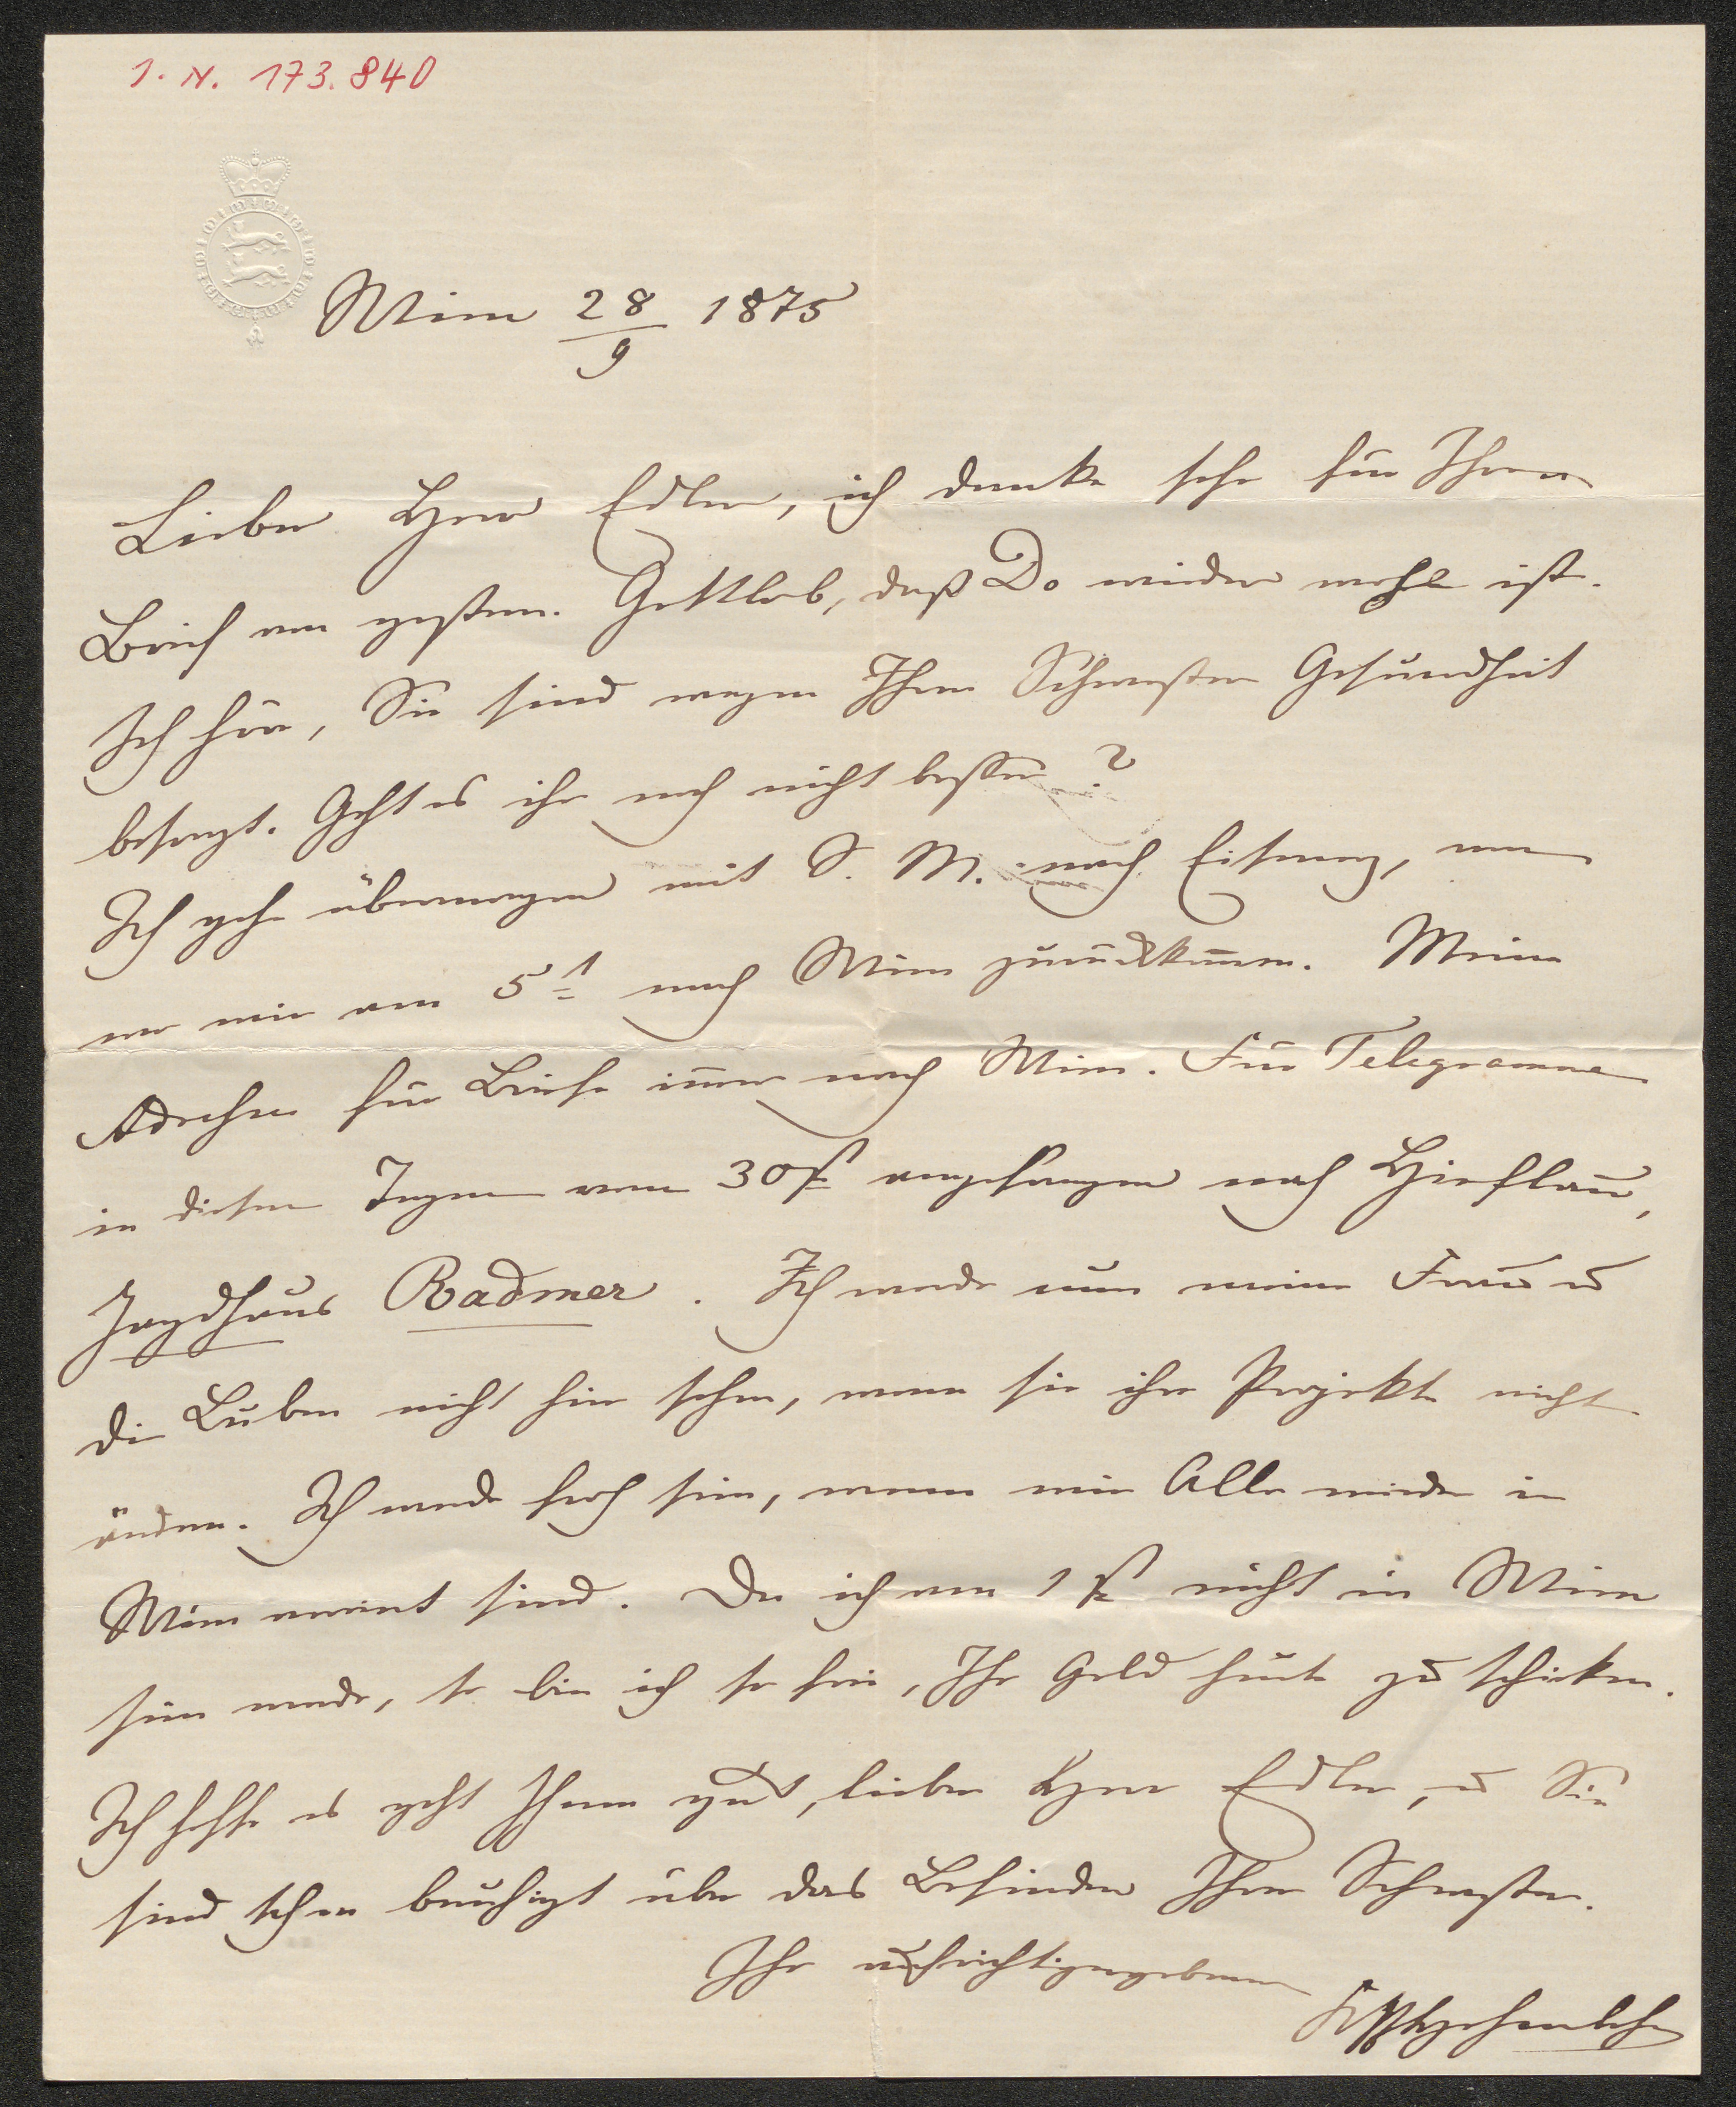 I. N. 173.840
Wien 28/9 1875
Lieber Herr Edler, ich danke sehr für Ihren
Brief von gestern. Gottlob, daß Do wieder wohl ist.
Ich höre, Sie sind wegen Ihrer Schwester Gesundheit
besorgt. Geht es ihr noch nicht besser?
Ich gehe übermorgen mit S. M. nach Eisenerz, von
wo wir am 5t nach Wien zurückkom̅en. Meine
Adresse für Briefe im̅er nach Wien. Für Telegramme
in diesen Tagen vom 30st angefangen nach Hieflau,
Jagdhaus Radmer. Ich werde nun meine Frau u
die Buben nicht hier sehen, wenn sie ihre Projekte nicht
ändern. Ich werde froh sein, wenn wir Alle wieder in
Wien vereint sind. Da ich am 1st nicht in Wien
sein werde, so bin ich so frei, Ihr Geld heute zu schicken.
Ich hoffe es geht Ihnen gut, lieber Herr Edler, u Sie
sind schon beruhigt über das Befinden Ihrer Schwester.
Ihr aufrichtig ergebener
Hohenlohe